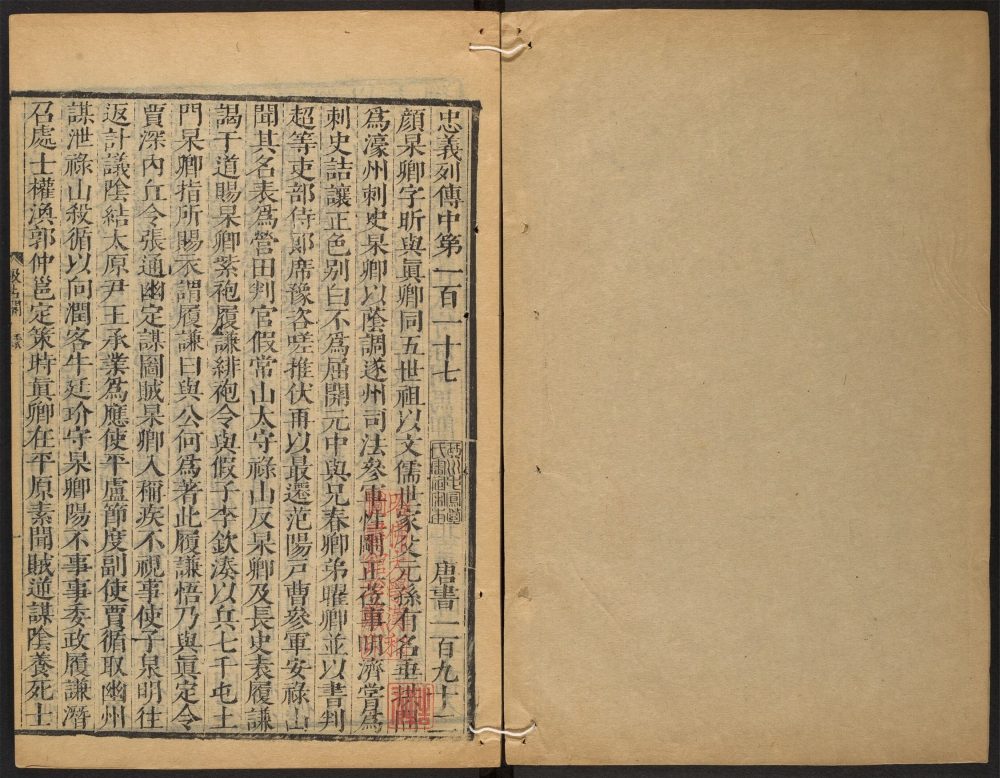 忠義列傳中第一百一十七 唐書一百九十二
顏杲卿字昕與真卿同五世祖以文儒世家父元孫有名垂拱間
為濠州刺史杲卿以蔭調遂州司法參軍性剛正莅事明濟嘗為
刺史詰讓正色別白不為屈開元中與兄春卿弟曜卿並以書判
超等吏部侍郎席豫咨嗟推伏再以最遷范陽戶曹參軍安祿山
聞其名表為營田判官假常山太守祿山反杲卿及長史袁履謙
謁于道賜杲卿紫袍履謙緋袍令與假子李欽湊以兵七千屯土
門杲卿指所賜衣謂履謙曰與公何為著此履謙悟乃與真定令
賈深內丘令張通幽定謀圖賊杲卿入稱疾不視事使子泉明往
返計議陰結太原尹王承業為應使平盧節度副使賈循取幽州
謀泄祿山殺循以向潤客牛廷玠守杲卿陽不事事委政履謙潛
召處士權渙郭仲邕定策時真卿在平原素聞賊逆謀陰養死士
汲古閣